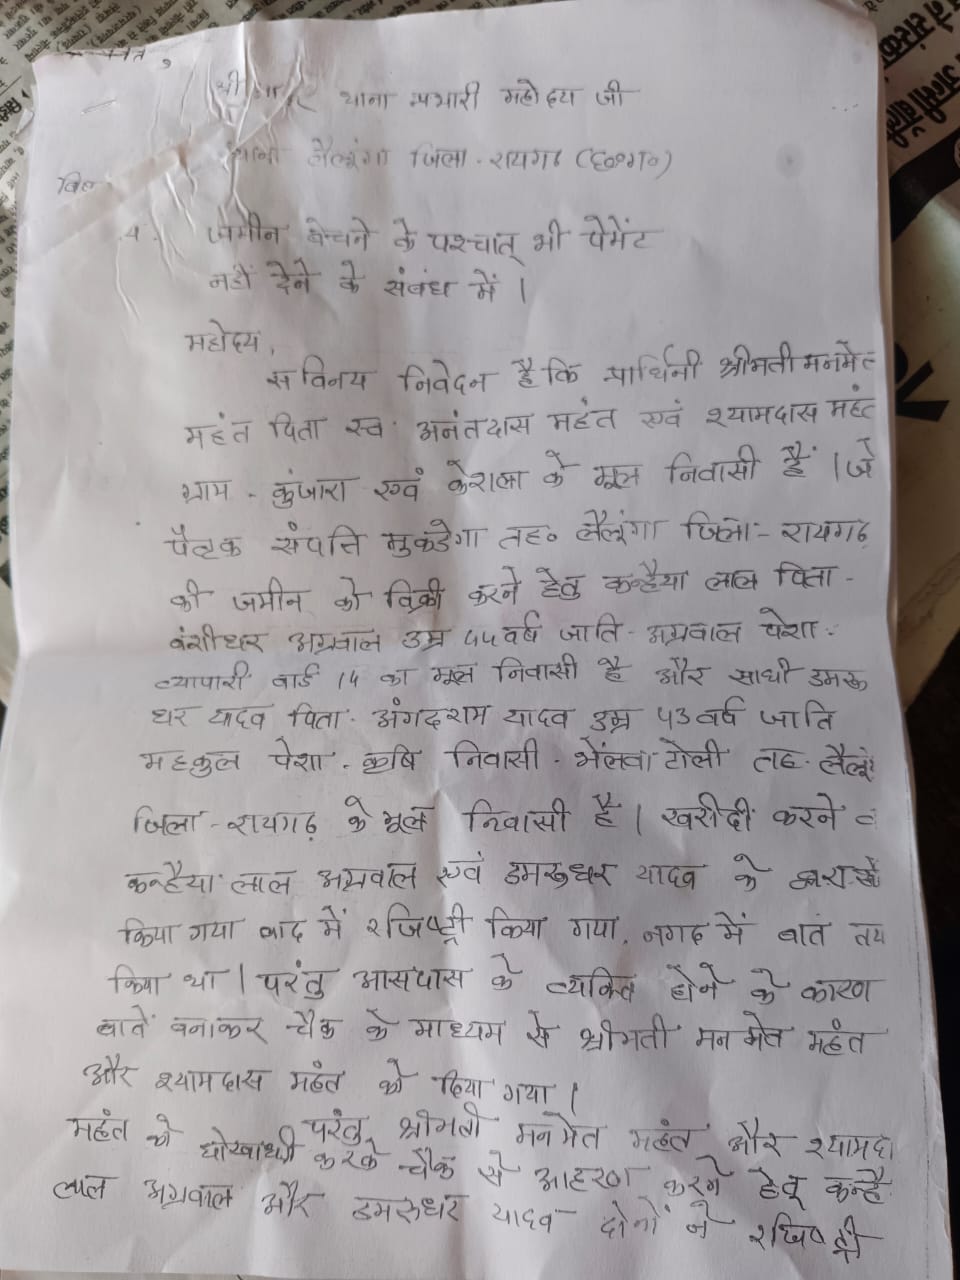 थाना प्रभारी महोदय जी
थाना लैलूंगा जिला - रायगढ़ (छ०ग०)
जमीन बेचने के पश्चात् भी पेमेंट
नहीं देने के संबंध में |
महोदय,
सविनय निवेदन है कि प्रार्थिनी श्रीमती मनमेत
महंत पिता स्व. अनंतदास महंत एवं श्यामदास महंत
ग्राम - कुंजारा एवं केराला के मूल निवासी हैं | जो
पैतृक संपत्ति मुकडेगा तह० लैलूंगा जिला - रायगढ़
की जमीन को बिक्री करने हेतु कन्हैया लाल पिता -
बंशीधर अग्रवाल उम्र ५५ वर्ष जाति - अग्रवाल पेशा -
व्यापारी वार्ड 14 का मूल निवासी है और साथी डमरू
धर यादव पिता - अंगदराम यादव उम्र ५३ वर्ष जाति
महकुल पेशा - कृषि निवासी - भेलवाटोली तह - लैलूं
जिला - रायगढ़ के मूल निवासी है | खरीदी करने
कन्हैया लाल अग्रवाल एवं डमरुधर यादव के द्वारा
किया गया बाद में रजिष्ट्री किया गया, नगद में बात तय
किया था | परंतु आसपास के व्यक्ति होने के कारण
बातें बनाकर चैक के माध्यम से श्रीमती मनमेत महंत
और श्यामदास महंत को दिया गया |
परंतु श्रीमती मनमेत महंत और श्यामदा
महंत को धोखाधड़ी करके चैक से आहरण करने हेतू कन्है
लाल अग्रवाल और डमरुधर यादव दोनों ने रजिष्ट्री